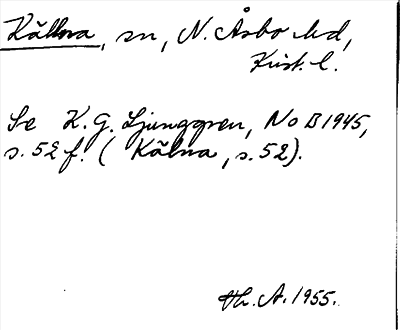 Källna, sn, N. Åsbo hd,
Krist. l.
Se K. G. Ljunggren, NoB 1945,
s. 52 f. (Källna, s. 52).
Th. A. 1955.